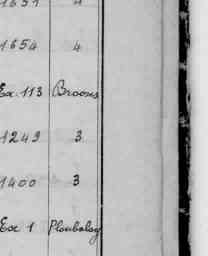 1654 4
Ex. 113 Broons
1249 3
1400 3
Ex 1 Ploubalay